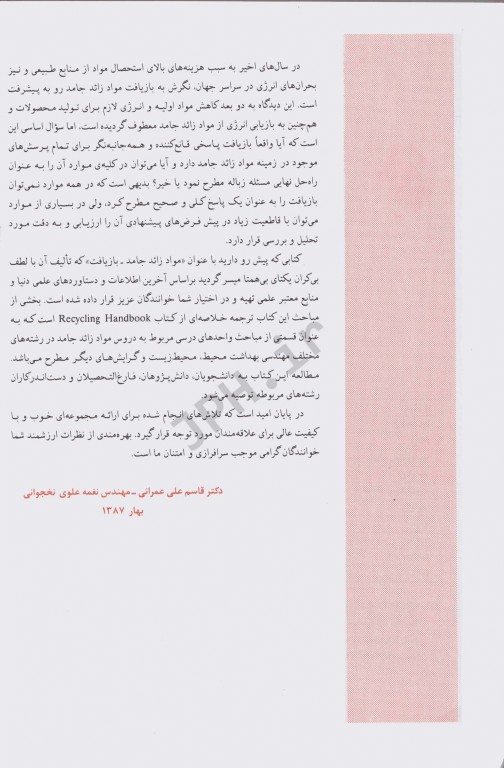 در سال‌های اخیر به سبب هزینه‌های بالای استحصال مواد از منابع طبیعی و نیز
بحران‌های انرژی در سراسر جهان، نگرش به بازیافت مواد زائد جامد رو به پیشرفت
است. این دیدگاه به دو بعد کاهش مواد اولیه و انرژی لازم برای تولید محصولات و
هم‌چنین به بازیابی انرژی از مواد زائد جامد معطوف گردیده است، اما سؤال اساسی این
است که آیا واقعاً بازیافت پاسخی قانع‌کننده و همه‌جانبه‌نگر برای تمام پرسش‌های
موجود در زمینه مواد زائد جامد دارد و آیا می‌توان در کلیه‌ی موارد آن را به عنوان
راه‌حل نهایی مسئله زباله مطرح نمود یا خیر؟ بدیهی است که در همه موارد نمی‌توان
بازیافت را به عنوان یک پاسخ کلی و صحیح مطرح کرد، ولی در بسیاری از موارد
می‌توان با قاطعیت زیاد در پیش فرض‌های پیشنهادی آن را ارزیابی و به دقت مورد
تحلیل و بررسی قرار دارد.
کتابی که پیش رو دارید با عنوان «مواد زائد جامد ـ بازیافت» که تألیف آن با لطف
بی‌کران یکتای بی‌همتا میسر گردید براساس آخرین اطلاعات و دستاوردهای علمی دنیا و
منابع معتبر علمی تهیه و در اختیار شما خوانندگان عزیز قرار داده شده است. بخشی از
مباحث این کتاب ترجمه خلاصه‌ای از کتاب Recycling Handbook است که به
عنوان قسمتی از مباحث واحدهای درسی مربوط به دروس مواد زائد جامد در رشته‌های
مختلف مهندسی بهداشت محیط، محیط‌زیست و گرایش‌های دیگر مطرح می‌باشد.
مطالعه این کتاب به دانشجویان، دانش‌پژوهان، فارغ‌التحصیلان و دست‌اندرکاران
رشته‌های مربوطه توصیه می‌شود.
در پایان امید است که تلاش‌های انجام شده برای ارائه مجموعه‌ای خوب و با
کیفیت عالی برای علاقه‌مندان مورد توجه قرار گیرد. بهره‌مندی از نظرات ارزشمند شما
خوانندگان گرامی موجب سرافرازی و امتنان ما است.
دکتر قاسم علی عمرانی ـ مهندس نغمه علوی نخجوانی
بهار ۱۳۸۷
JPH.ir